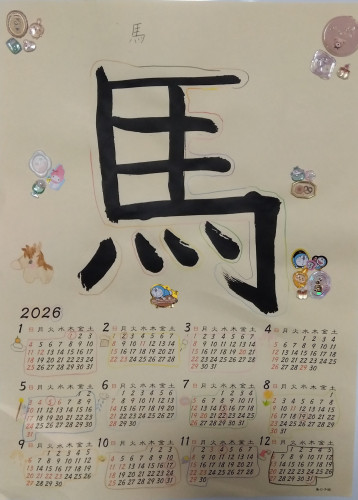 馬
馬
2026
1 日 月 火 水 木 金 土
1 2 3
4 5 6 7 8 9 10
11 12 13 14 15 16 17
18 19 20 21 22 23 24
25 26 27 28 29 30 31
2 日 月 火 水 木 金 土
1 2 3 4 5 6 7
8 9 10 11 12 13 14
15 16 17 18 19 20 21
22 23 24 25 26 27 28
3 日 月 火 水 木 金 土
1 2 3 4 5 6 7
8 9 10 11 12 13 14
15 16 17 18 19 20 21
22 23 24 25 26 27 28
29 30 31
4 日 月 火 水 木 金 土
1 2 3 4
5 6 7 8 9 10 11
12 13 14 15 16 17 18
19 20 21 22 23 24 25
26 27 28 29 30
5 日 月 火 水 木 金 土
1 2
3 4 5 6 7 8 9
10 11 12 13 14 15 16
17 18 19 20 21 22 23
24 25 26 27 28 29 30
31
6 日 月 火 水 木 金 土
1 2 3 4 5 6
7 8 9 10 11 12 13
14 15 16 17 18 19 20
21 22 23 24 25 26 27
28 29 30
7 日 月 火 水 木 金 土
1 2 3 4
5 6 7 8 9 10 11
12 13 14 15 16 17 18
19 20 21 22 23 24 25
26 27 28 29 30 31
8 日 月 火 水 木 金 土
1
2 3 4 5 6 7 8
9 10 11 12 13 14 15
16 17 18 19 20 21 22
23 24 25 26 27 28 29
30 31
9 日 月 火 水 木 金 土
1 2 3 4 5
6 7 8 9 10 11 12
13 14 15 16 17 18 19
20 21 22 23 24 25 26
27 28 29 30
10 日 月 火 水 木 金 土
1 2 3
4 5 6 7 8 9 10
11 12 13 14 15 16 17
18 19 20 21 22 23 24
25 26 27 28 29 30 31
11 日 月 火 水 木 金 土
1 2 3 4 5 6 7
8 9 10 11 12 13 14
15 16 17 18 19 20 21
22 23 24 25 26 27 28
29 30
12 日 月 火 水 木 金 土
1 2 3 4 5
6 7 8 9 10 11 12
13 14 15 16 17 18 19
20 21 22 23 24 25 26
27 28 29 30 31